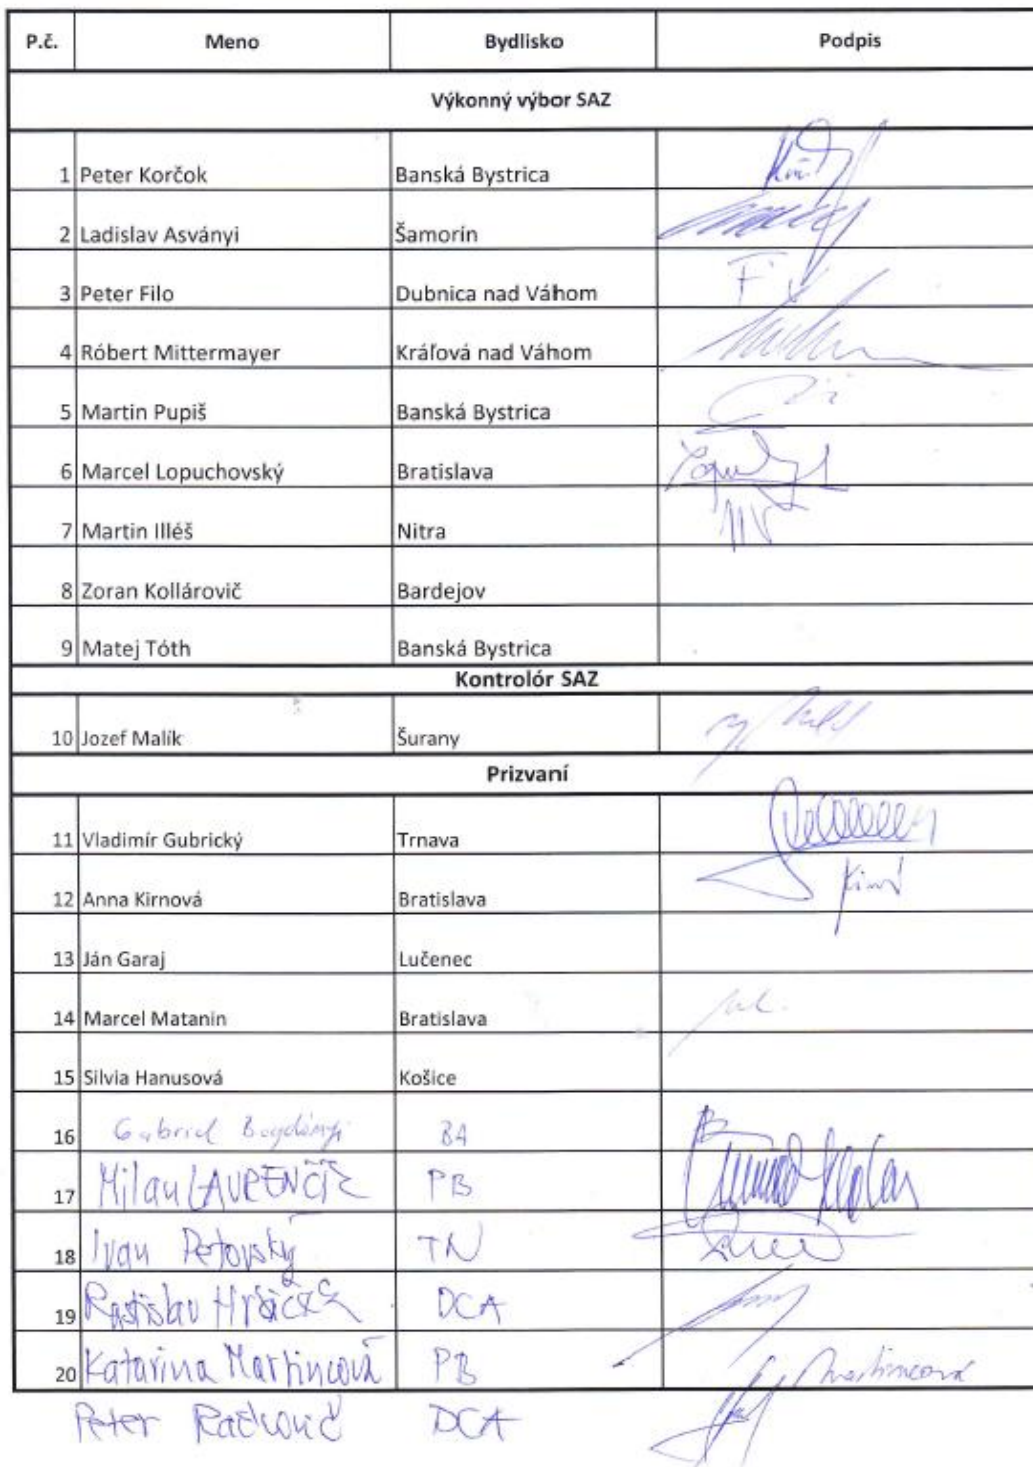 P.č. Meno Bydlisko Podpis
Výkonný výbor SAZ
1 Peter Korčok Banská Bystrica
2 Ladislav Asványi Šamorín
3 Peter Filo Dubnica nad Váhom
4 Róbert Mittermayer Kráľová nad Váhom
5 Martin Pupiš Banská Bystrica
6 Marcel Lopuchovský Bratislava
7 Martin Illéš Nitra
8 Zoran Kollárovič Bardejov
9 Matej Tóth Banská Bystrica
Kontrolór SAZ
10 Jozef Malík Šurany
Prizvaní
11 Vladimír Gubrický Trnava
12 Anna Kirnová Bratislava
13 Ján Garaj Lučenec
14 Marcel Matanin Bratislava
15 Silvia Hanusová Košice
16 Gabriel BA
17 Milan LAURENČÍK PB
18 Ivan Petovský TN
19 Rastislav DCA
20 Katarína Martincová PB Martincová
Peter DCA